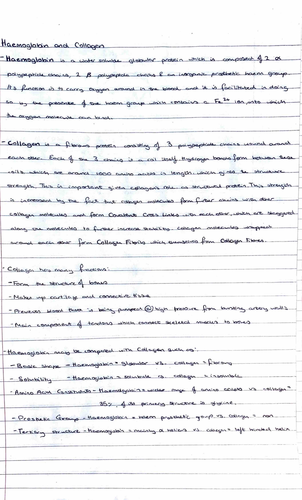 Haemoglobin and Collagen
- Haemoglobin is a water soluble globular protein which is component of 2 α
polypeptide chains, 2 β polypeptide chains & an inorganic prosthetic haem group
Its function is to carry oxygen around in the blood, and it is facilitated in doing
so by the presence of the haem group which contains a Fe2+ ion onto which
the oxygen molecules can bind.
- Collagen is a fibrous protein consisting of 3 polypeptide chains wound around
each other. Each of the 3 chains is a coil itself. Hydrogen bonds form between these
coils which are around 1000 amino acids in length which gives the structure
strength. This is important given collagens role as structural protein. This strength
is increased by the fact that collagen molecules form further chains with other
collagen molecules and form Covalent Cross Links with each other, which are staggered
along the molecules to further increase stability. Collagen molecules wrapped
around each other form Collagen Fibrils which themselves form Collagen Fibres.
- Collagen has many functions:
- Form the structure of bones
- Makes up cartilage and connective tissue
- Prevents blood that is being pumped @ high pressure from bursting artery walls
- Main component of tendons which connect skeletal muscles to bones
- Haemoglobin may be compared with Collagen such as:
- Basic Shape - Haemoglobin = Globular vs. Collagen = Fibrous
- Solubility - Haemoglobin = Soluble vs. Collagen = insoluble
- Amino Acid Constituents - Haemoglobin = wide range of amino acids vs collagen =
35% of its primary structure is glycine.
- Prosthetic Group - Haemoglobin = haem prosthetic group vs. collagen = non
- Tertiary Structure - Haemoglobin = mainly α helices vs collagen = left handed helix